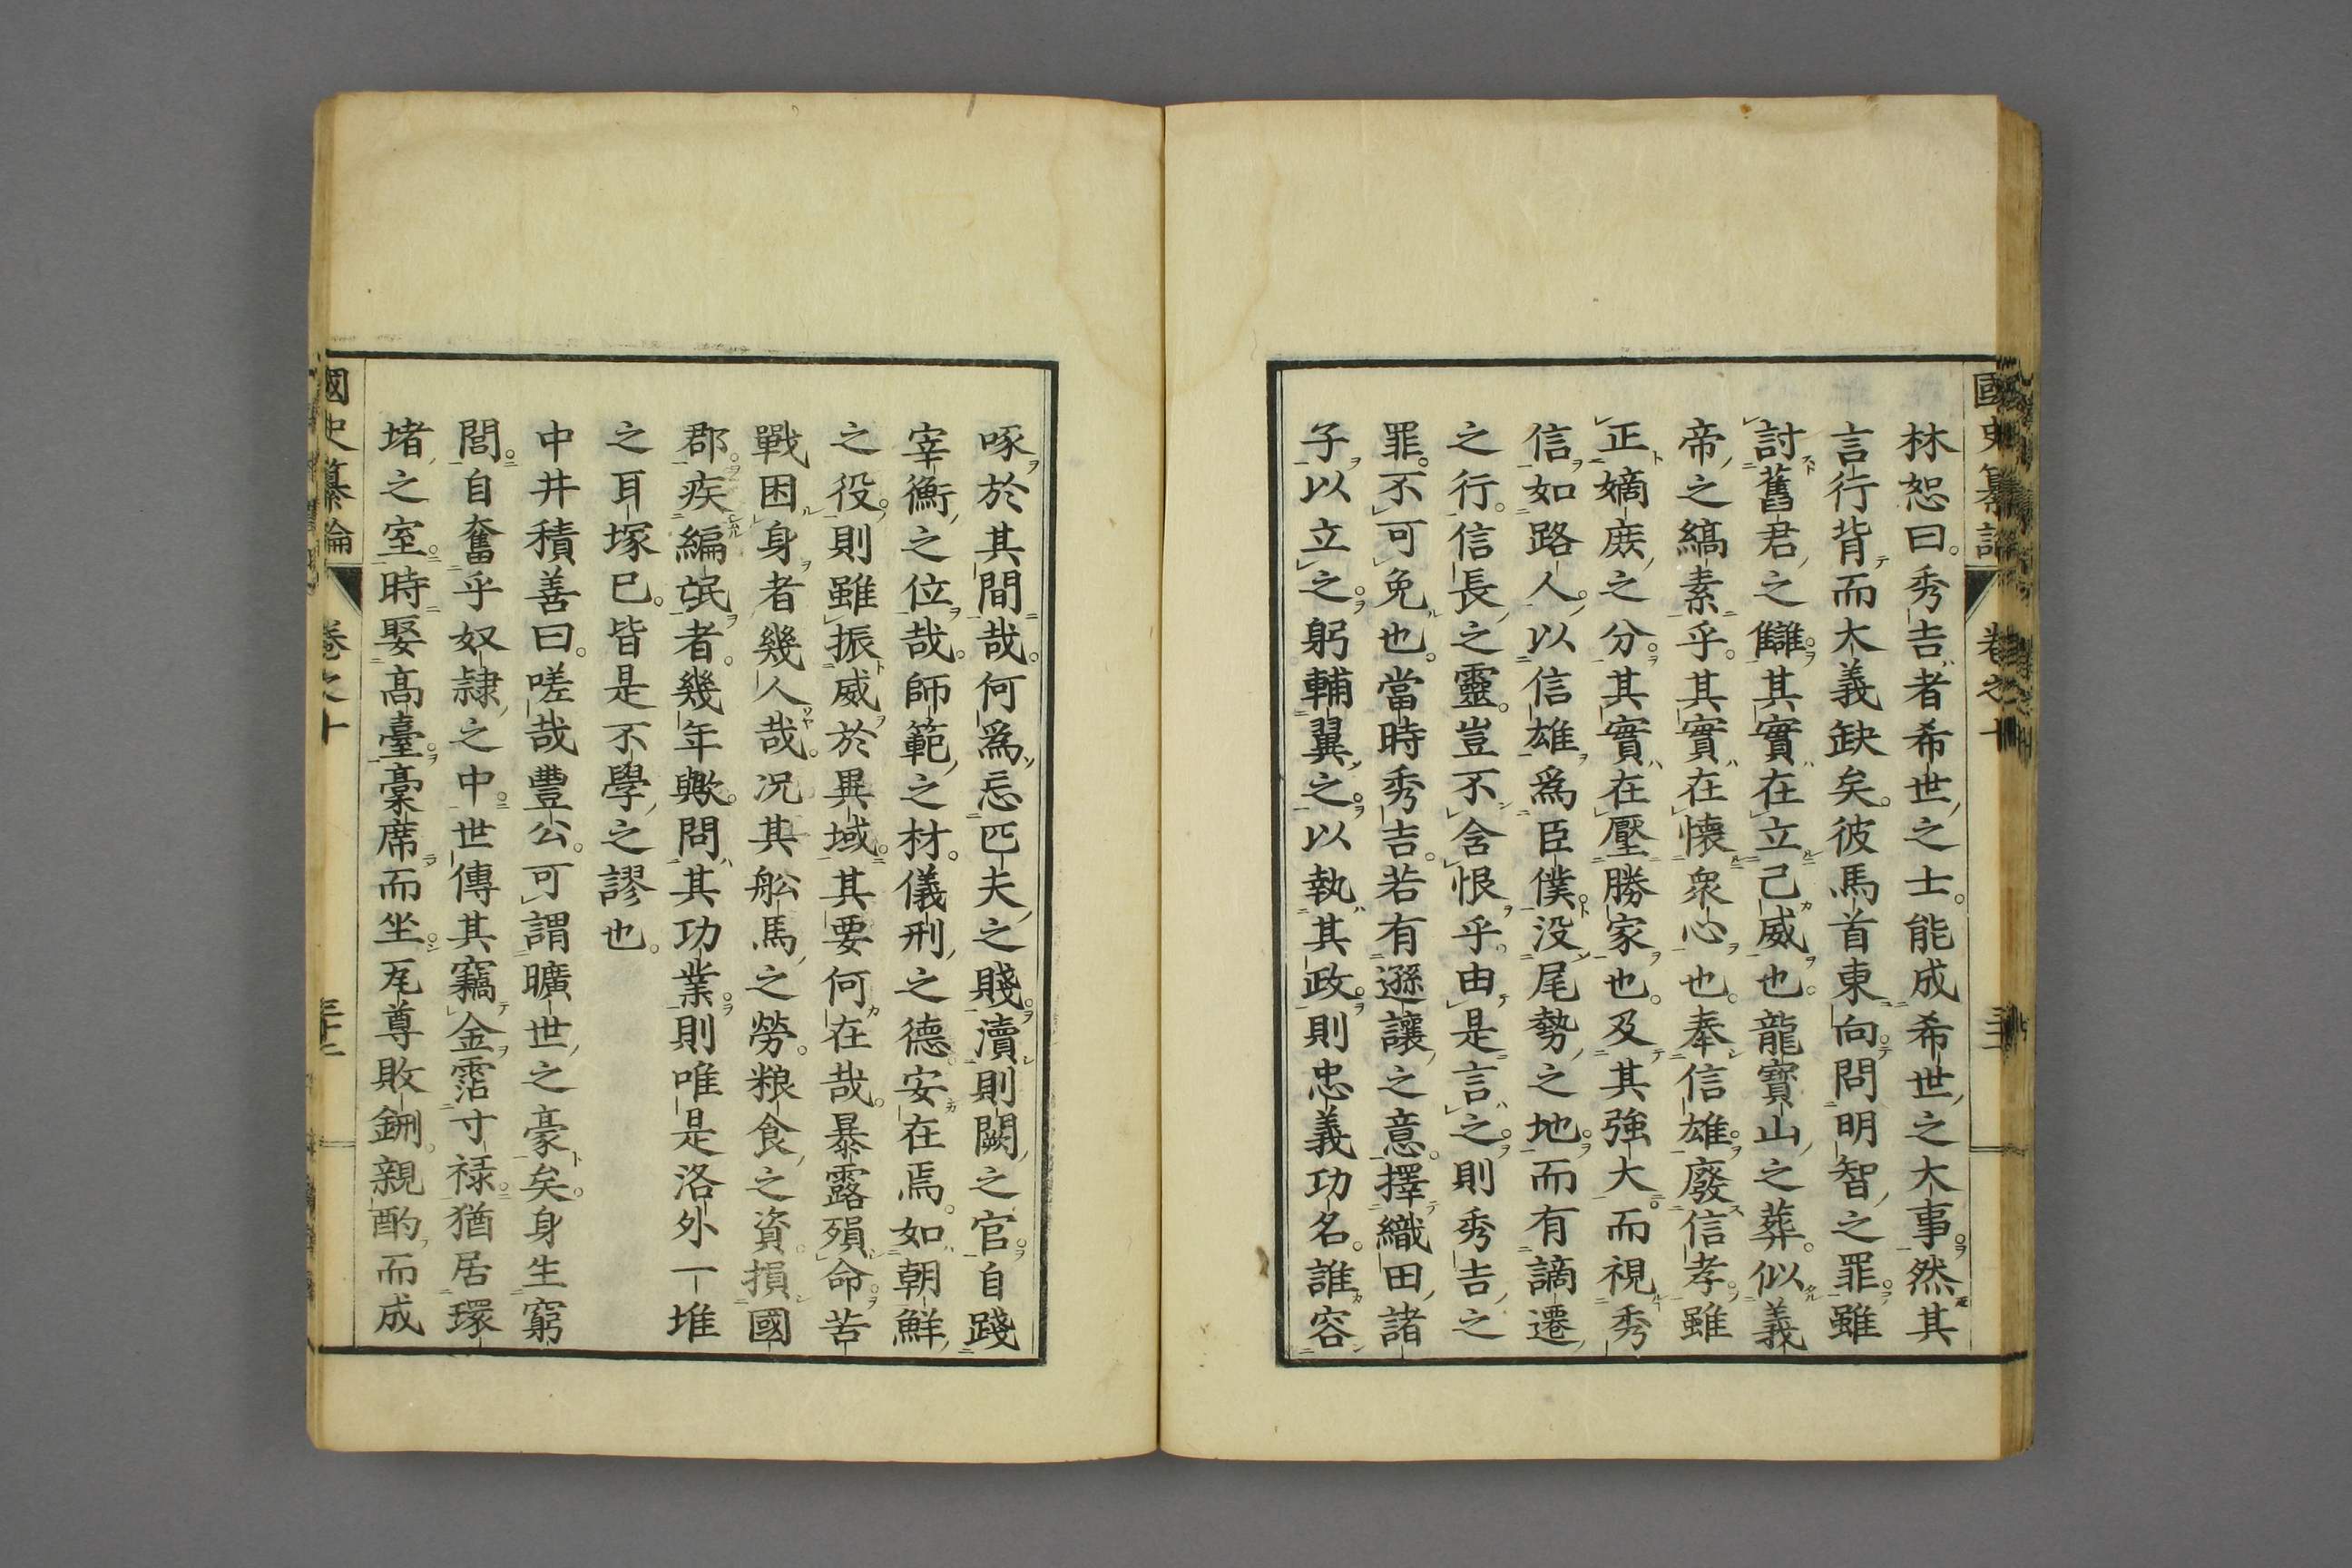 林恕曰秀吉者希世之士能成希世之大事然其
言行背而大義缺矣彼馬首東向問明智之罪雖
討舊君之讎其實在立己威也龍寶山之葬似義
帝之縞素乎其實在懷衆心也奉信雄廢信孝雖
正嫡庶之分其實在壓勝家也及其強大而視秀
信如路人以信雄爲臣僕没尾勢之地而有謫遷
之行信長之靈豈不含恨乎由是言之則秀吉之
罪不可免也當時秀吉若有遜讓之意擇織田諸
子以立之躬輔翼之以執其政則忠義功名誰容
啄於其間哉何爲忘匹夫之賤瀆則闕之官自踐
宰衡之位哉師範之材儀刑之德安在焉如朝鮮
之役則雖振威於異域其要何在哉暴露殞命苦
戰困身者幾人哉况其舩馬之勞粮食之資損國
郡疾編氓者幾年歟問其功業則唯是洛外一堆
之耳塚已皆是不學之謬也
中井積善曰嗟哉豐公可謂曠世之豪矣身生窮
閭自奮乎奴隷之中世傳其竊金霑寸祿猶居環
堵之室時娶髙臺稾席而坐瓦尊敗鉶親酌而成
國史纂論 卷之十